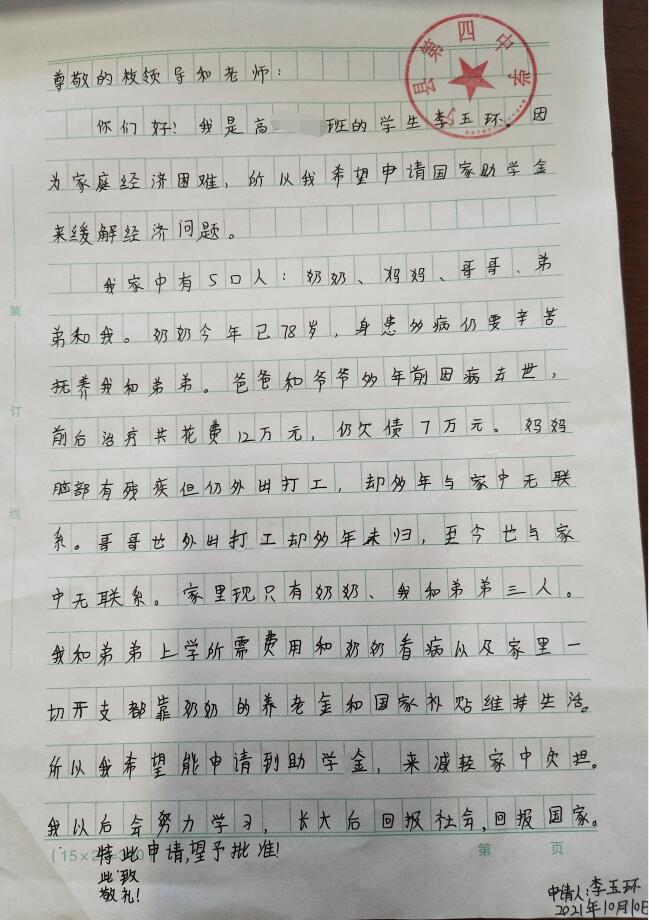 县第四中学
尊敬的校领导和老师：
你们好！我是高 班的学生李玉环。因
为家庭经济困难，所以我希望申请国家助学金
来缓解经济问题。
我家中有5口人：奶奶、妈妈、哥哥、弟
弟和我。奶奶今年已78岁，身患多病仍要辛苦
抚养我和弟弟。爸爸和爷爷多年前因病去世，
前后治疗共花费12万元，仍欠债7万元。妈妈
脑部有残疾但仍外出打工，却多年与家中无联
系。哥哥也外出打工却多年未归，至今也与家
中无联系。家里现只有奶奶、我和弟弟三人。
我和弟弟上学所需费用和奶奶看病以及家里一
切开支都靠奶奶的养老金和国家补贴维持生活。
所以我希望能申请到助学金，来减轻家中负担。
我以后会努力学习，长大后回报社会，回报国家。
特此申请,望予批准!
此致
敬礼!
申请人:李玉环
2021年10月10日
装
订
线
第 页